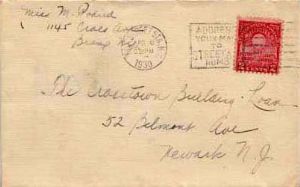 Miss M.
1145 Croes Ave
Bronx N.Y.
1930
ADDRESS
YOUR MAIL
TO
STREET AND
NUMBER
The Crosstown Building Loan
52 Belmont Ave
Newark N.J.